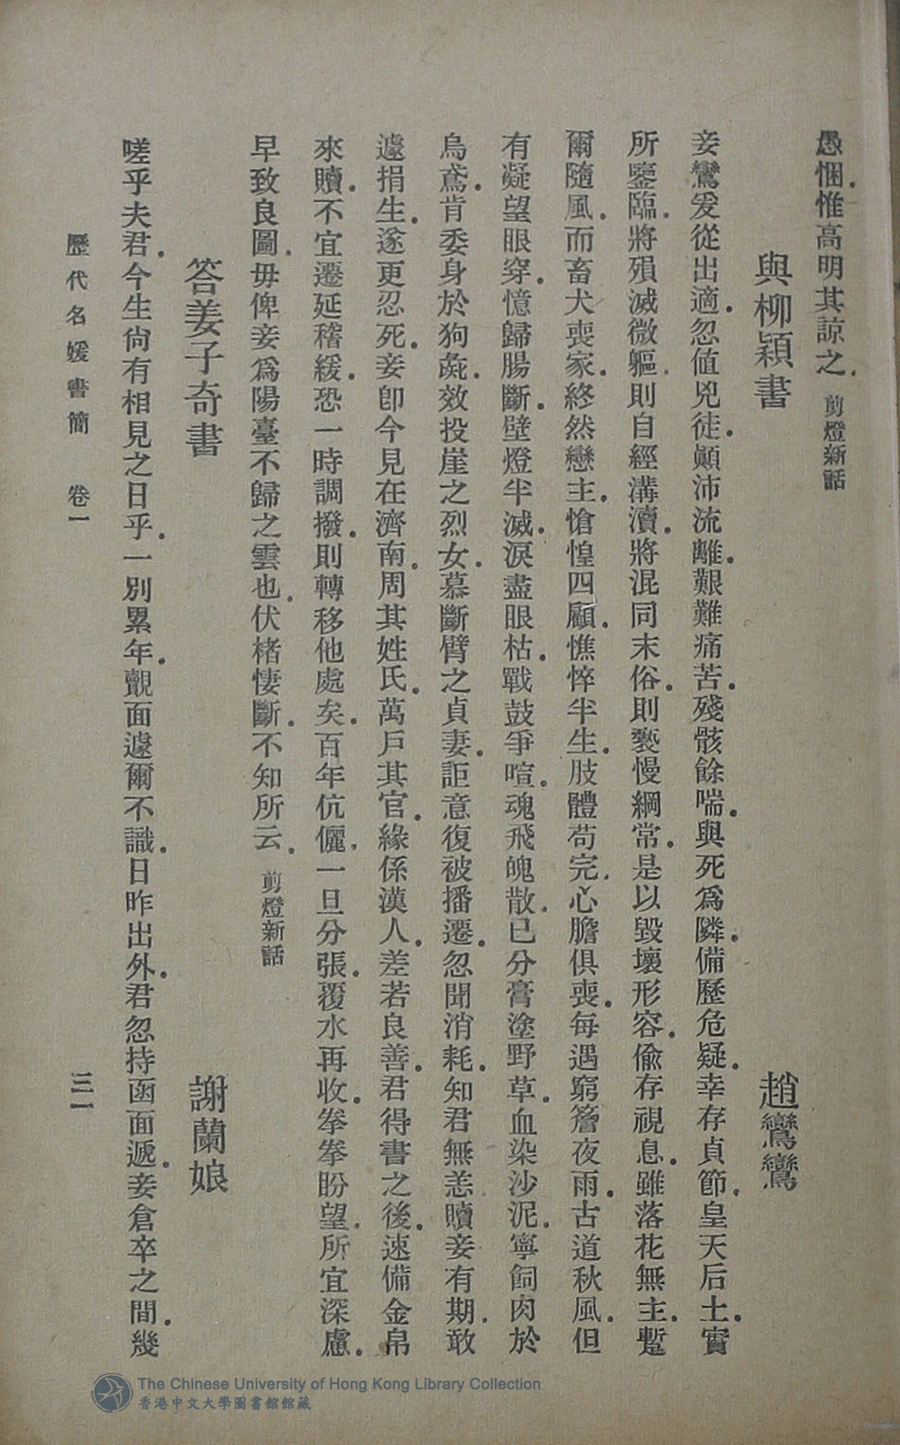 愚悃.惟高明其諒之. 剪燈新話
與柳穎書 趙鸞鸞
妾鸞爰從出適.忽值兇徒.顚沛流離.艱難痛苦.殘骸餘喘.與死爲隣.備歷危疑.幸存貞節.皇天后土.實
所鑒臨.將殞滅微軀.則自經溝瀆.將混同末俗.則褻慢綱常.是以毀壞形容.偸存視息.雖落花無主.蹔
爾隨風.而畜犬喪家.終然戀主.愴惶四顧.憔悴半生.肢體苟完.心膽俱喪.每遇窮簷夜雨.古道秋風.但
有凝望眼穿.憶歸腸斷.壁燈半滅.淚盡眼枯.戰鼓爭喧.魂飛魄散.已分膏塗野草.血染沙泥.寧飼肉於
烏鳶.肯委身於狗彘.效投崖之烈女.慕斷臂之貞妻.詎意復被播遷.忽聞消耗.知君無恙.贖妾有期.敢
遽捐生.遂更忍死.妾卽今見在濟南.周其姓氏.萬戶其官.緣係漢人.差若良善.君得書之後.速備金帛
來贖.不宜遷延稽緩.恐一時調撥.則轉移他處矣.百年伉儷.一旦分張.覆水再收.拳拳盼望.所宜深慮.
早致良圖.毋俾妾爲陽臺不歸之雲也.伏楮悽斷.不知所云. 剪燈新話
答姜子奇書 謝蘭娘
嗟乎夫君.今生尙有相見之日乎.一別累年.覿面遽爾不識.日昨出外.君忽持函面遞.妾倉卒之間.幾
歷代名媛書簡 卷一 三一
The Chinese University of Hong Kong Library Collection
香港中文大學圖書館館藏